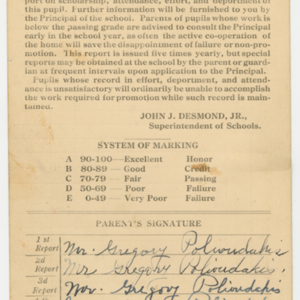 port on scholarship, attendance, effort, and department of
this pupil. Further information will be furnished to you by
the Principal of the school. Parents of pupils whose work is
below the passing grade are advised to consult the Principal
early in the school year, as often the active co-operation of
the home will save the disappointment of failure or non-pro-
motion. This report is issued five times yearly, but special
reports may be obtained at the school by the parent or guard-
ian at frequent intervals upon application to the Principal.
Pupils whose record in effort, department, and attend-
ance is unsatisfactory will ordinarily be unable to accomplish
the work required for promotion while such record is main-
tained.
JOHN J. DESMOND, JR.,
Superintendent of Schools.
SYSTEM OF MARKING
A 90-100—Excellent Honor
B 80-89—Good Credit
C 70-79—Fair Passing
D 50-69—Poor Failure
E 0-49—Very Poor Failure
PARENT'S SIGNATURE
1st Report Mr. Gregory Polioudakis
2d Report Mr Gregory Polioudakis
3d Report Mr. Gregory Polioudakis